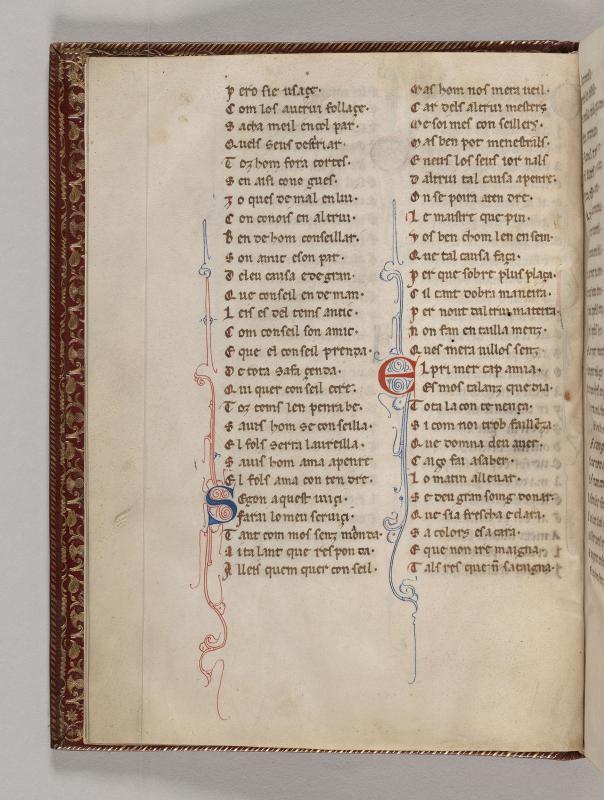 P ero sie usage.
C om los autrui follage.
S acha meil encol par.
Quels seus destriar.
T oz hom fora cortes.
S en aisi cono gues.
Z o ques de mal en lui.
C on conois en altrui.
B en de hom conseillar.
S on amic e son par.
D e leu causa e de gran.
Q ue conseil en de man.
L eis es del tems antic.
C om conseil son amic.
E que el conseil prenda.
D e tota sa fazenda.
Q ui quer con seil cere.
T oz tems len penra be.
S auis hom se con seilla.
E l fols serra laureilla.
S auis hom ama apenre
E l fols ama con ten dre.
S Egon aquest iuizi.
Farai lo meu seruizi.
T ant com mos senz monda.
A i ta lant que res pon da.
A lleis quem quer con seil.
Mas hom nos mera ueil.
C ar dels altrui mesters
Me soi mes con seillers.
M as ben por menestrals.
E neus los seus ior nals
D altrui tal causa apenre.
O n se poira aten dre.
L e maistre que pin.
V os ben chom len en sein.
Q ue tal causa faza.
P er que sobre plus plaza.
C il cant dobra maneira.
P er nout dal trui mateira.
N on fan en tailla menz.
Q ues mera nullos senz.
E l pri mer cap amia.
Es mos talanz que dia.
T ota la con te nenza.
S i com noi trob faillẽza
Q ue domna deu auer.
C aizo fai asaber.
L o matin alleuar.
S e deu gran soing donar.
Q ue sia frescha e clara.
S a colors e sa cara.
E que non ire maigna.
T als res que ñ sataigna.